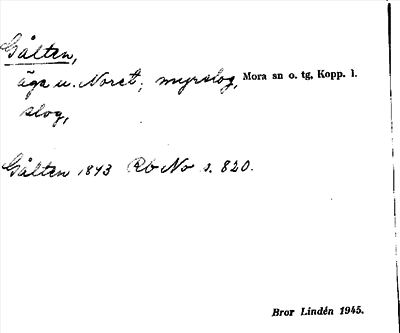 Gålten,
äga u. Noret; myrslog, Mora sn o. tg, Kopp. l.
slog,
Gålten 1843 Rb No s. 820.
Bror Lindén 1945.